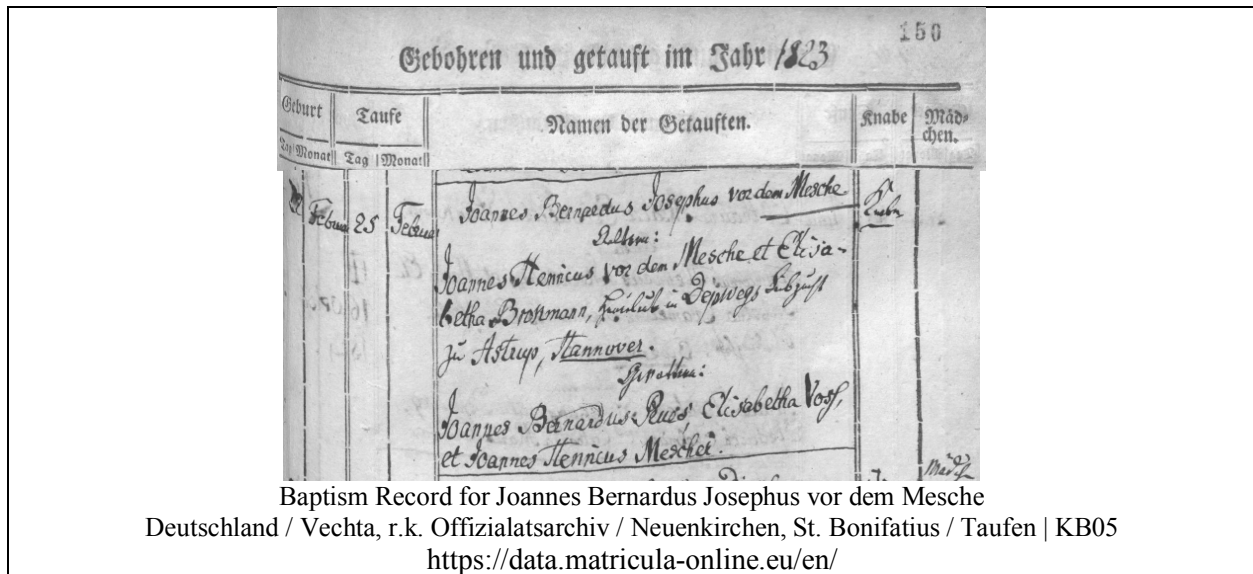 150
Gebohren und getauft im Jahr 1823
Geburt Taufe Namen der Getauften. Knabe Mäd=
chen.
Tag Monat Tag Monat
22 Februar 25 Februar Joannes Bernardus Josephus vor dem Mesche Knabe
Aeltern:
Joannes Henricus vor dem Mesche et Elisa-
betha Brokmann, Heuerleute in Leibzucht
zu Astrup, Hannover.
Gevattern:
Joannes Bernardus Elisabetha Voss,
et Joannes Henricus Mescher.
Mädch
Baptism Record for Joannes Bernardus Josephus vor dem Mesche
Deutschland / Vechta, r.k. Offizialatsarchiv / Neuenkirchen, St. Bonifatius / Taufen | KB05
https://data.matricula-online.eu/en/